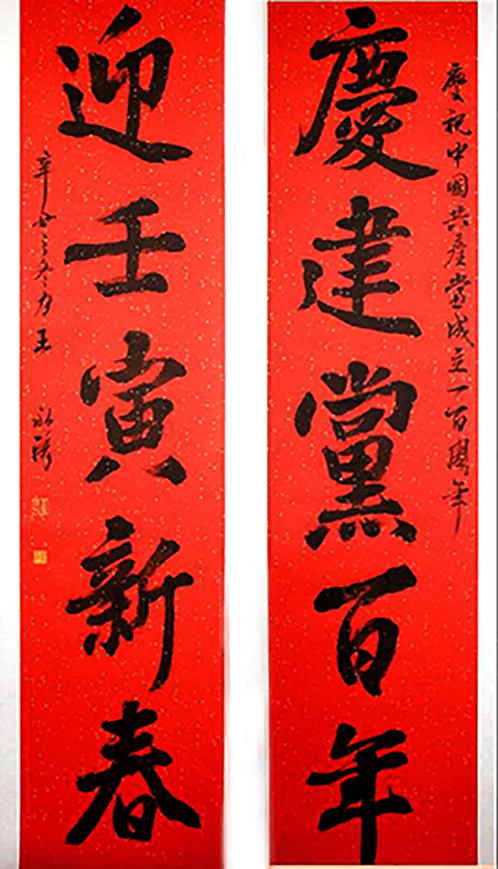 慶祝中國共產黨成立一百周年
慶建黨百年
迎壬寅新春
辛丑之冬月王